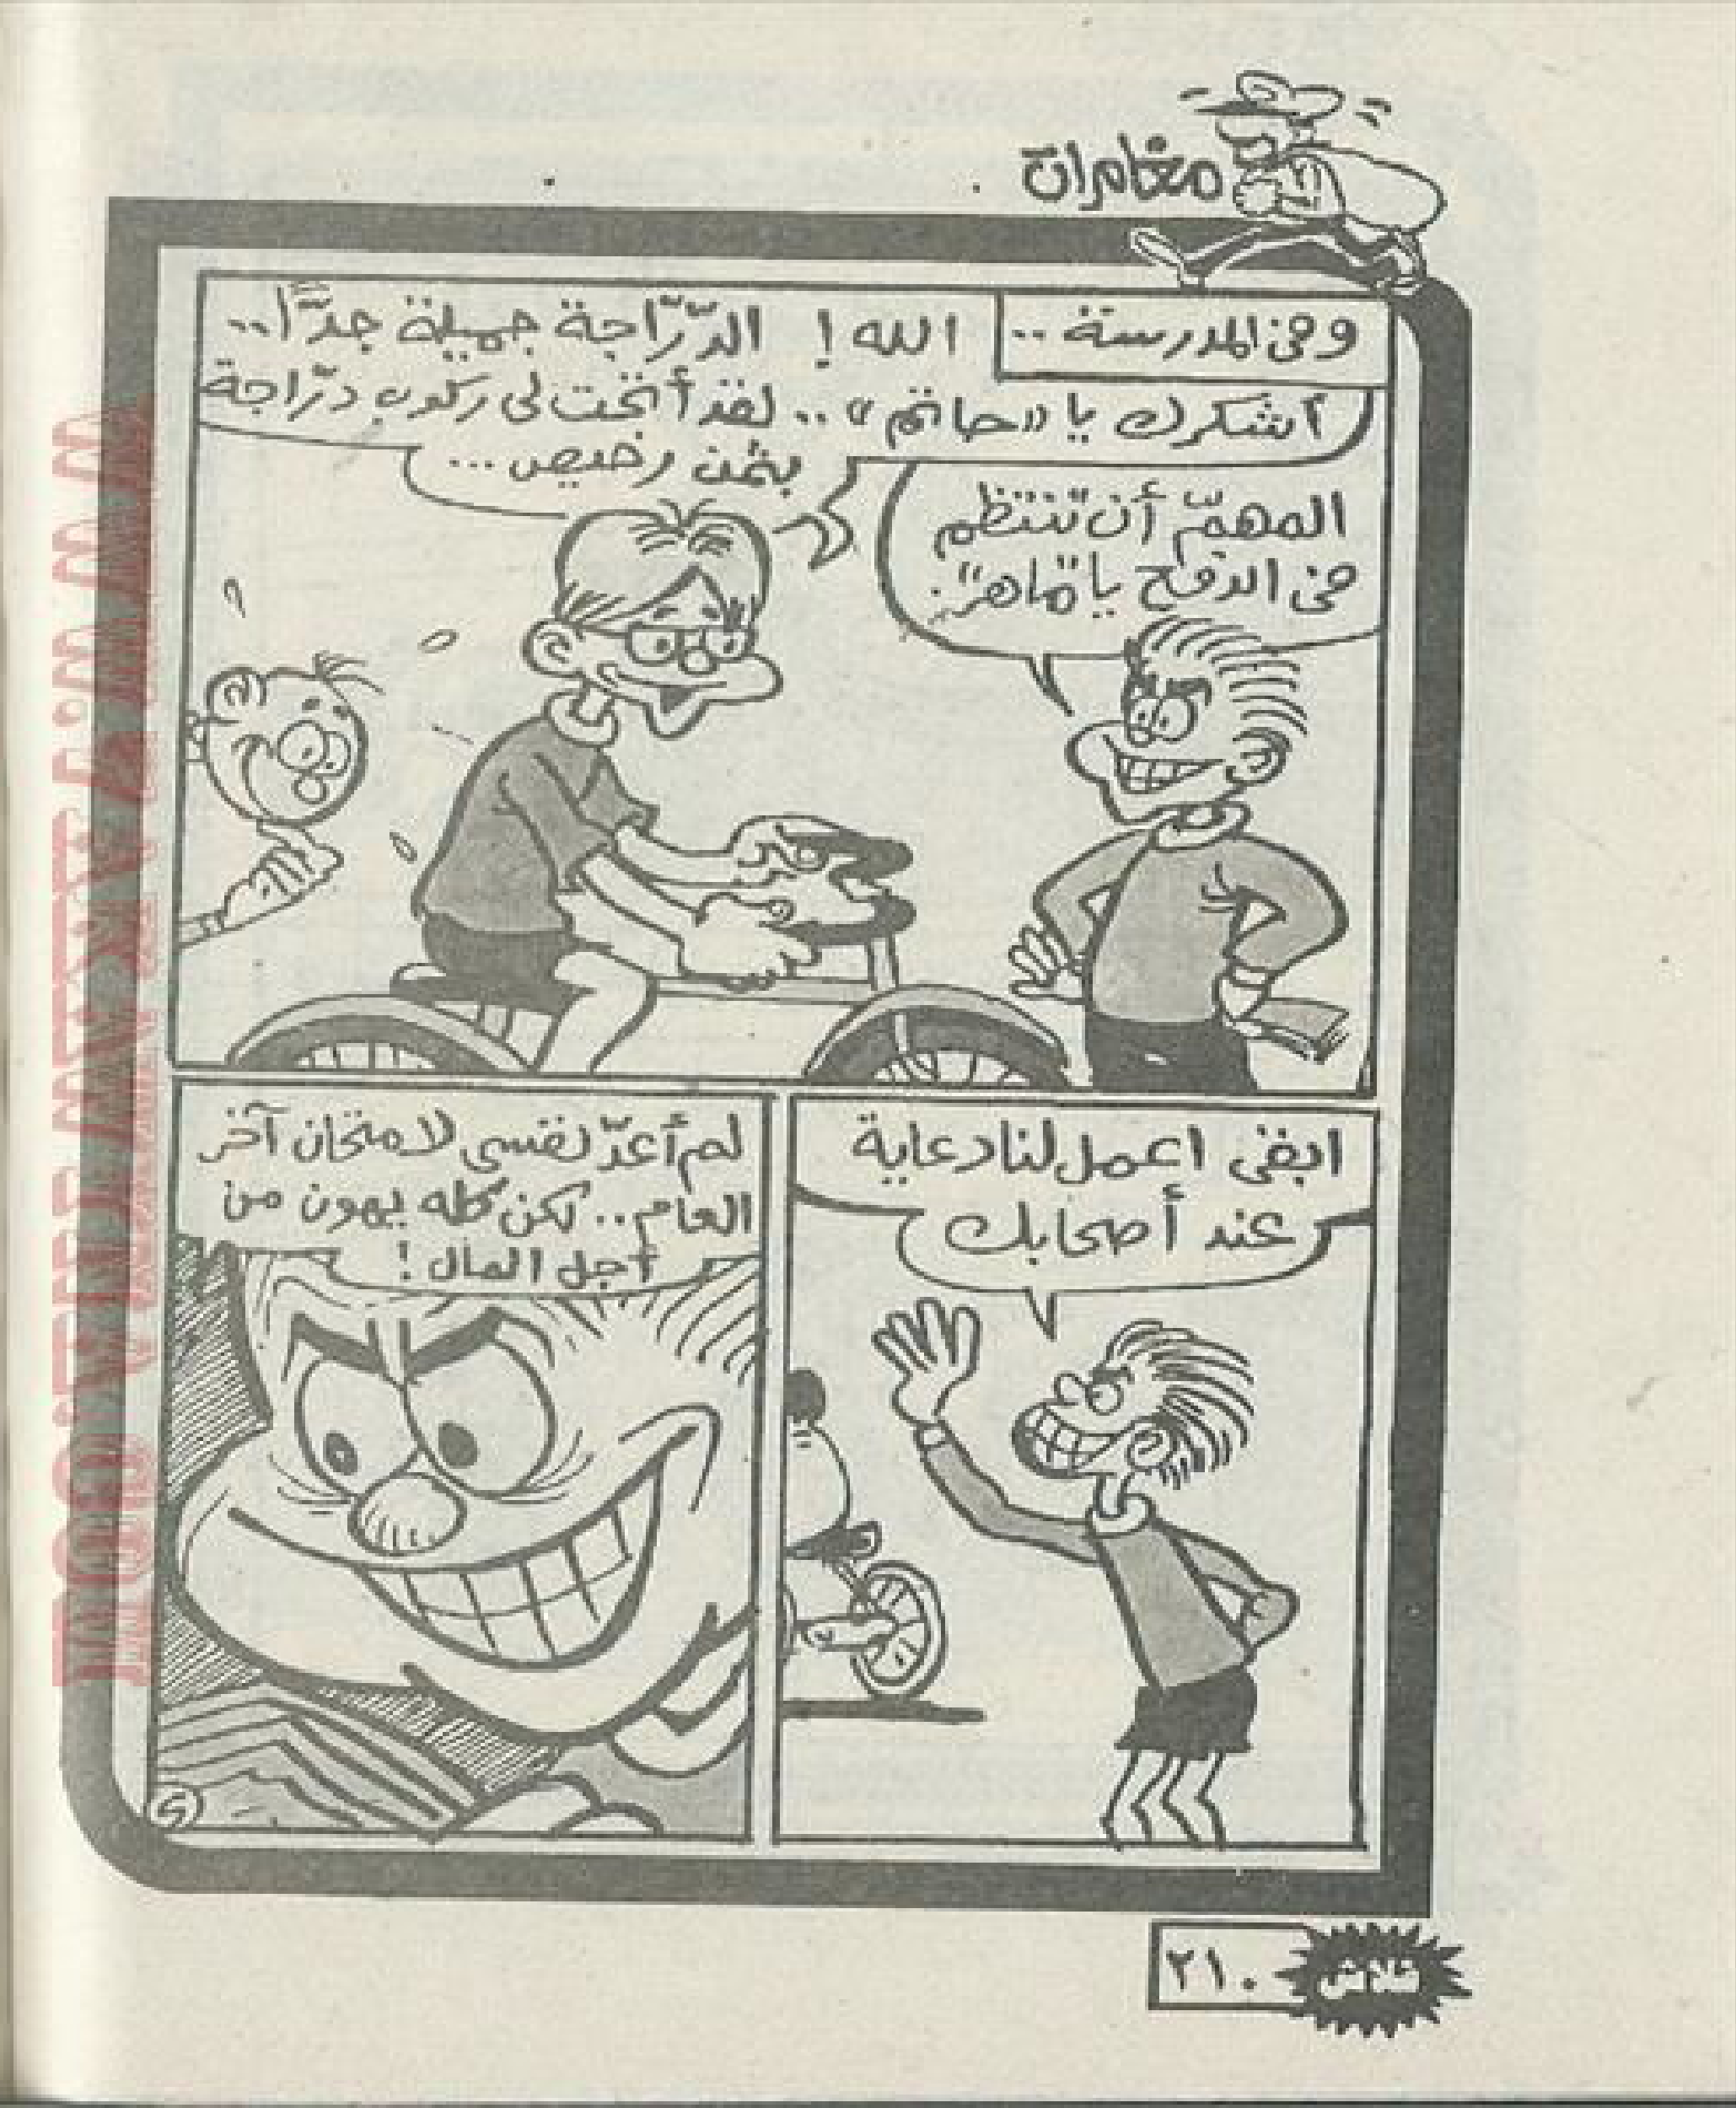 مغامرات
وفى المدرسة ..
الله ! الدّرّاجة جميلة جدًّا ..
أشكرك يا «حاتم» .. لقد أتحت لى ركوب درّاجة
بثمن رخيص ...
المهمّ أن تنتظم
فى الدفع يا "ماهر".
ابقى اعمل لنا دعاية
عند أصحابك
لم أعدّ نفسى لامتحان آخر
العام .. لكن كله يهون من
أجل المال !
فلاش
٢١٠